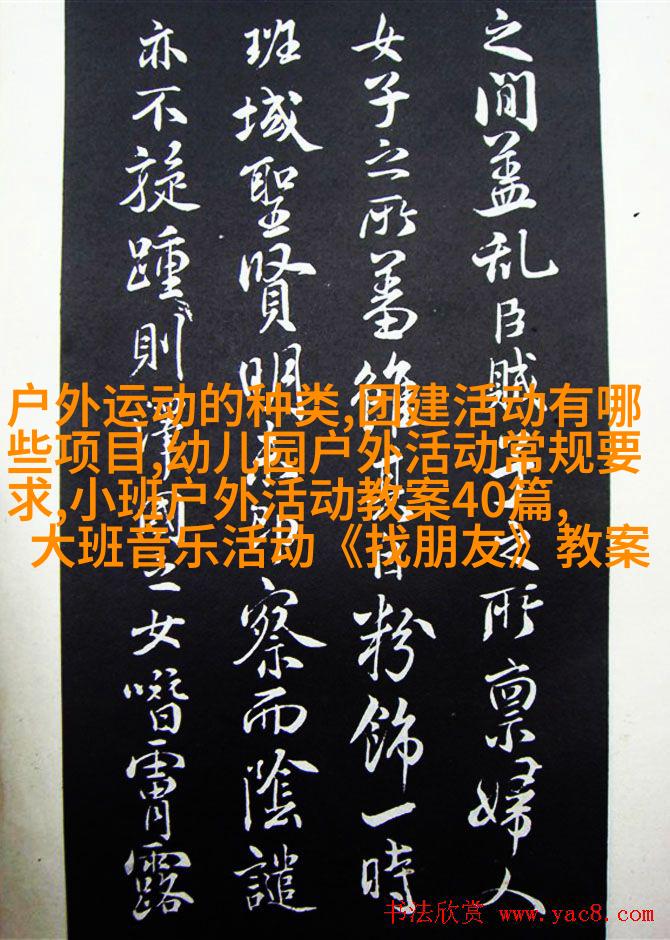 之間蓋乱臣賊子之所禀婦人
女子之所蓄粉飾一時
班域聖賢明察而陰譴
亦不旋踵則澤國之女噆霄露
户外运动的种类,团建活动有哪
些项目,幼儿园户外活动常规要
求,小班户外活动教案40篇,
大班音乐活动《找朋友》教案
书法欣赏 www.yac8.com